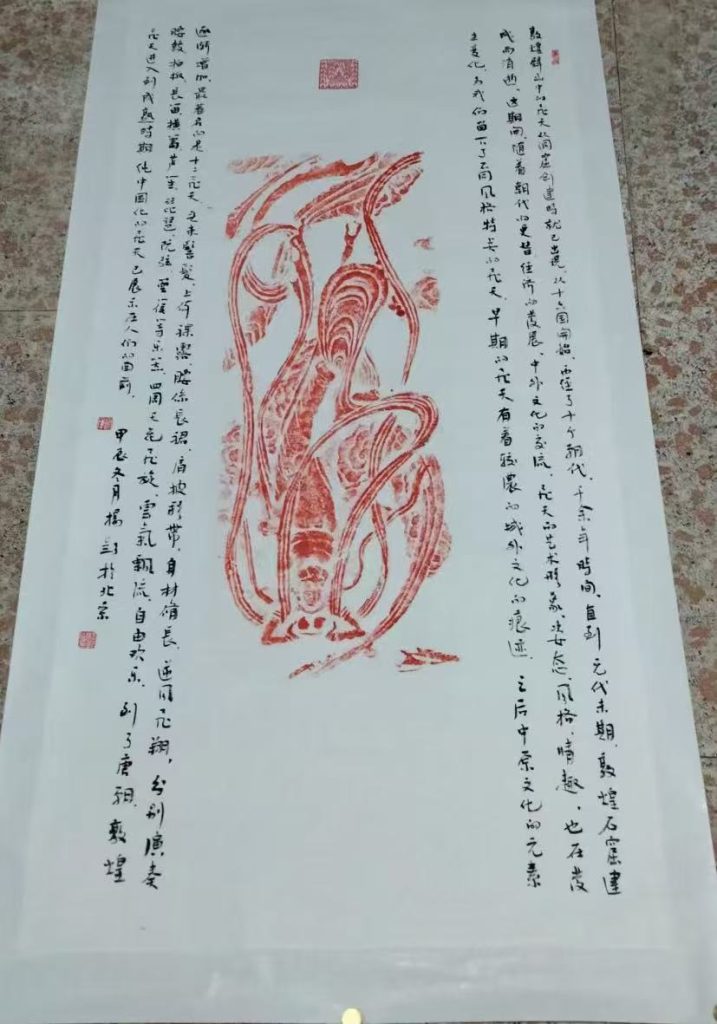 敦煌群山中的飞天从洞窟创建时就已出现、从十六国开始、历经了十个朝代、千余年时间、直到元代末期、敦煌石窟建
成而消逝、这期间、随着朝代的更替、经济的发展、中外文化的交流、飞天的艺术形象、姿态、风格、晴趣、也在发
生变化、为我们留下了不同风格特点的飞天、早期的飞天有着较浓的域外文化的痕迹、之后中原文化的元素
逐渐增加、最著名的是十二飞天、束髻发、上体裸露、腰係长裙、肩披彩带、身材修长、逆风飞翔、分别演奏
腰鼓、拍板、长笛、横笛、芦笙、琵琶、阮弦、箜篌等乐器、四周天花飞旋、雲气飘流、自由欢乐、到了唐朝、敦煌
飞天进入到成熟时期、纯中国化的飞天已展示在人们的面前、
甲辰冬月楊 於北京